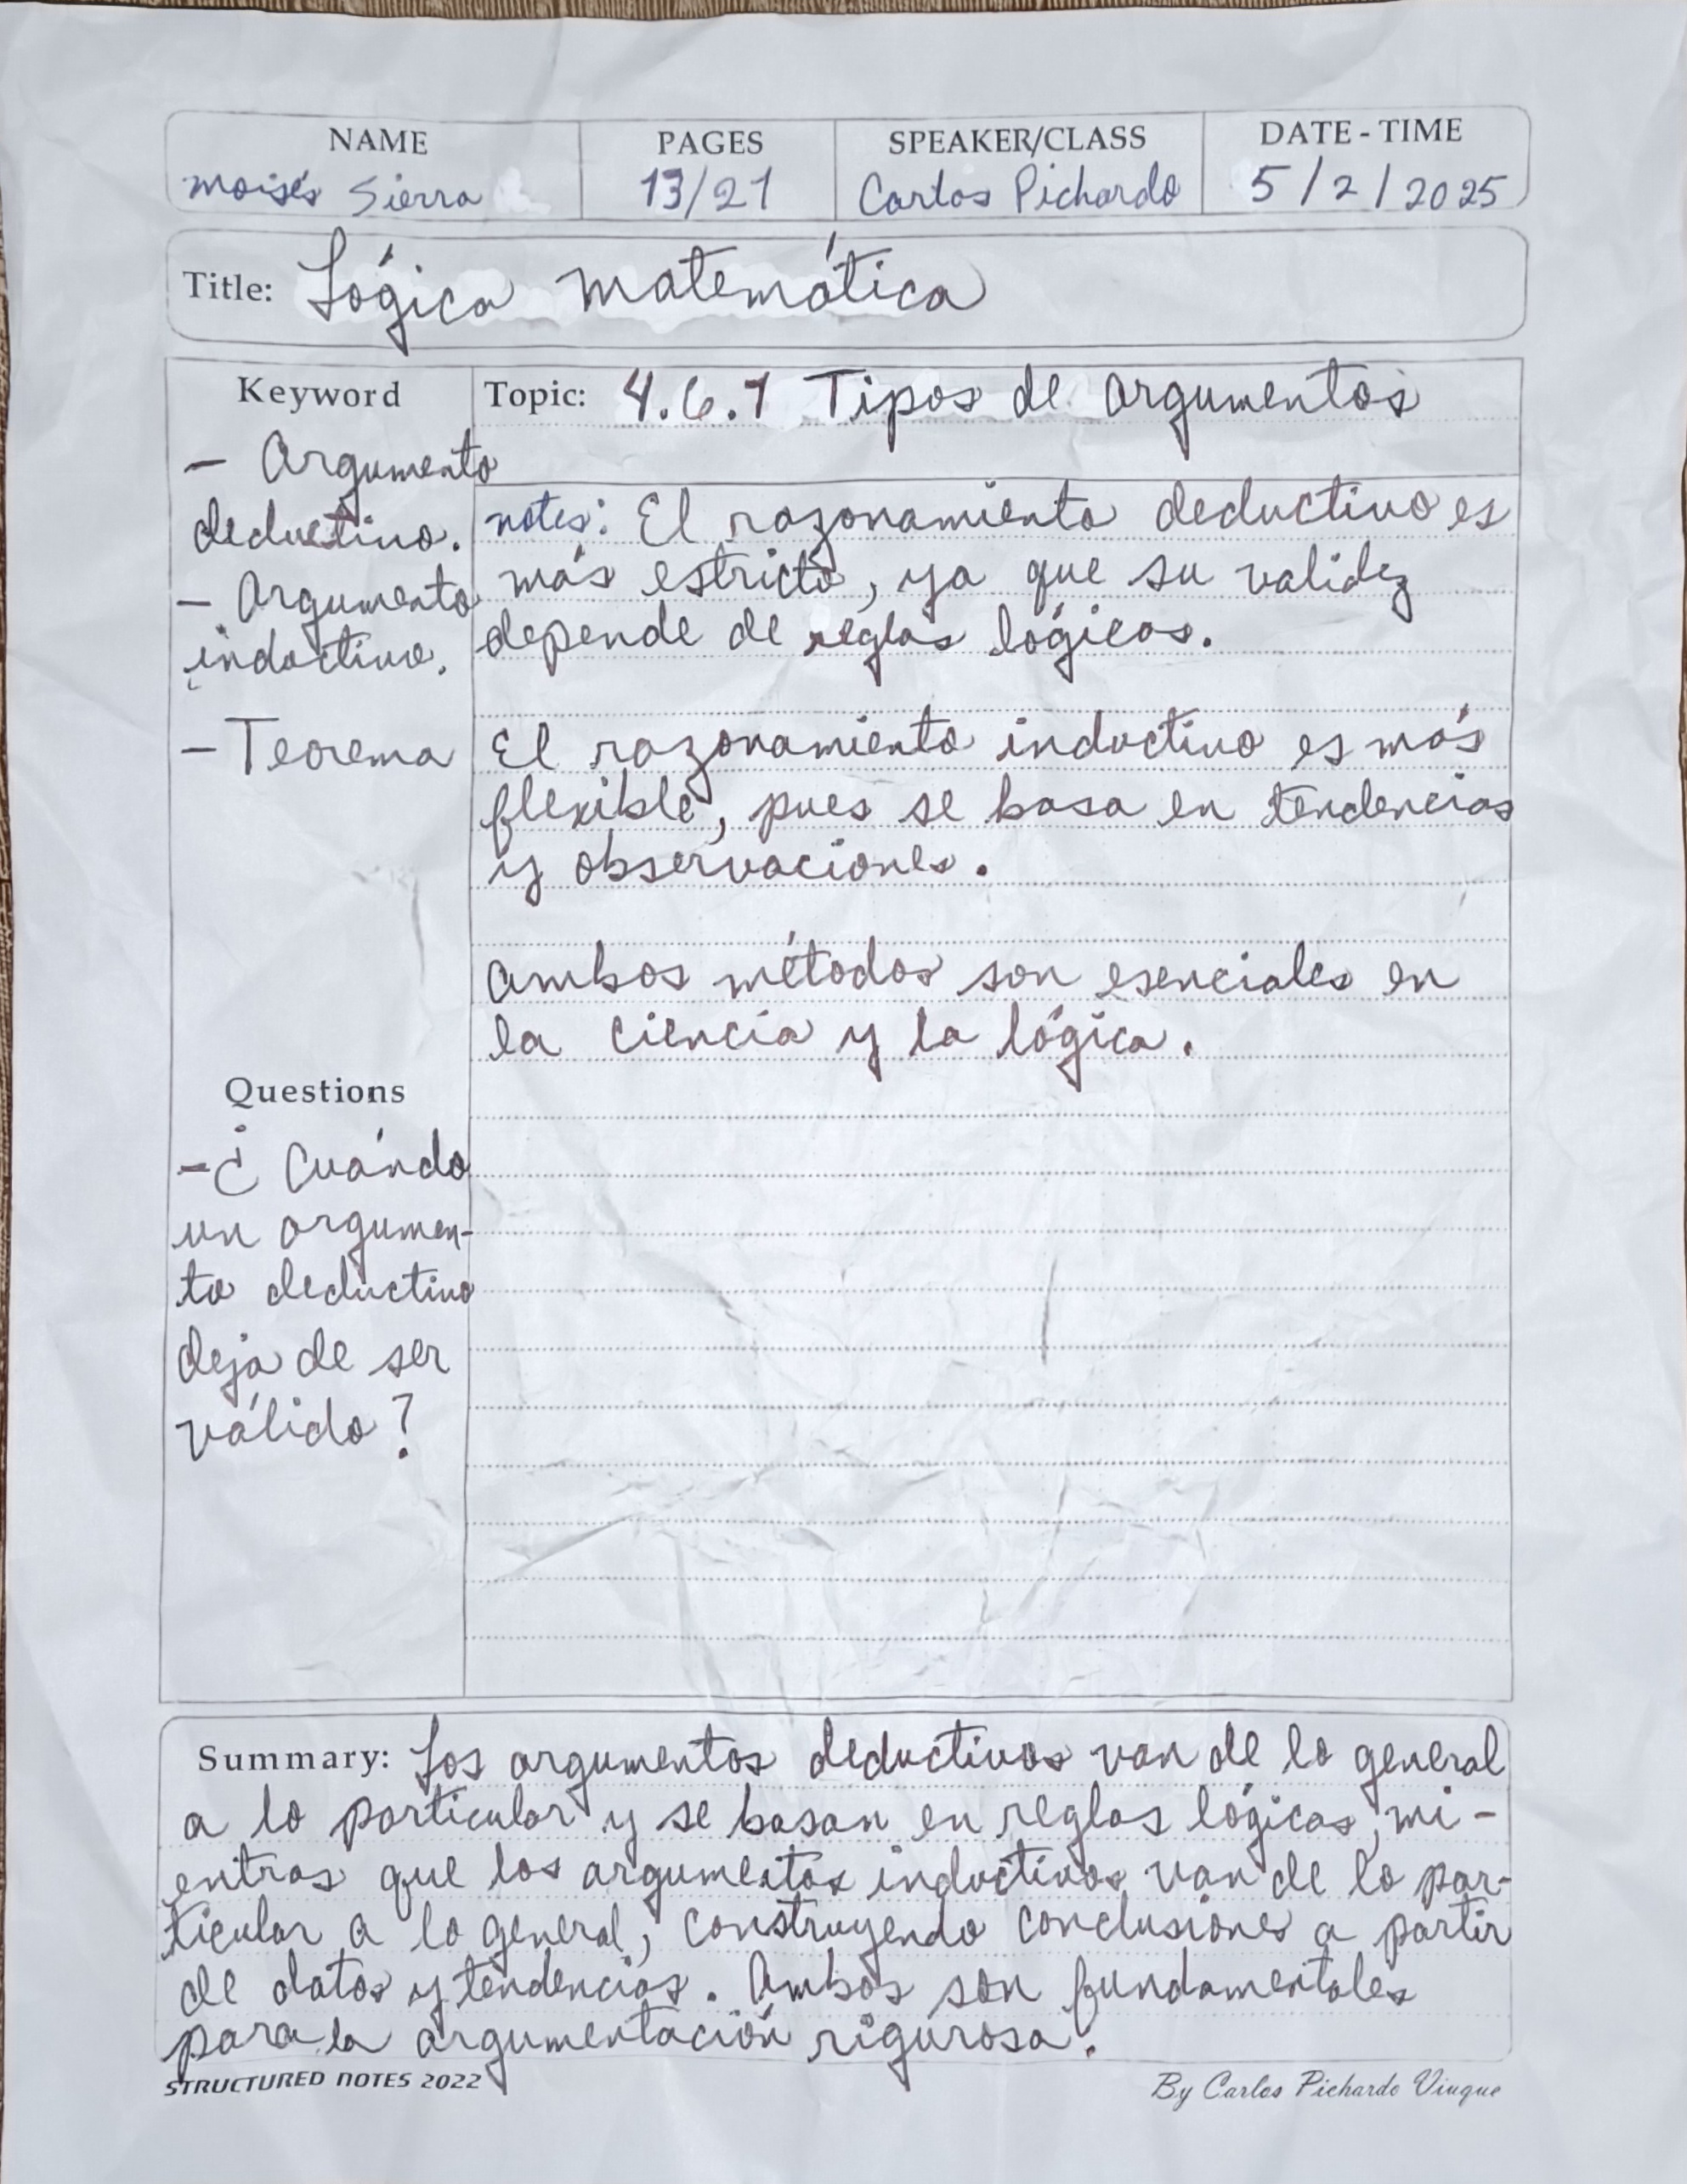 NAME PAGES SPEAKER/CLASS DATE - TIME
Moisés Sierra 13/21 Carlos Pichardo 5/2/2025
Title: Lógica matemática
Keyword
- Argumento
deductivo.
- Argumento
inductivo.
- Teorema
Topic: 4.6.1 Tipos de argumentos
notes: El razonamiento deductivo es
más estricto, ya que su validez
depende de reglas lógicas.
El razonamiento inductivo es más
flexible, pues se basa en tendencias
y observaciones.
Ambos métodos son esenciales en
la ciencia y la lógica.
Questions
- ¿Cuándo
un argumen-
to deductivo
deja de ser
válido?
Summary: Los argumentos deductivos van de lo general
a lo particular y se basan en reglas lógicas, mi-
entras que los argumentos inductivos van de lo par-
ticular a lo general, construyendo conclusiones a partir
de datos y tendencias. Ambos son fundamentales
para la argumentación rigurosa.
STRUCTURED NOTES 2022 By Carlos Pichardo Viuque